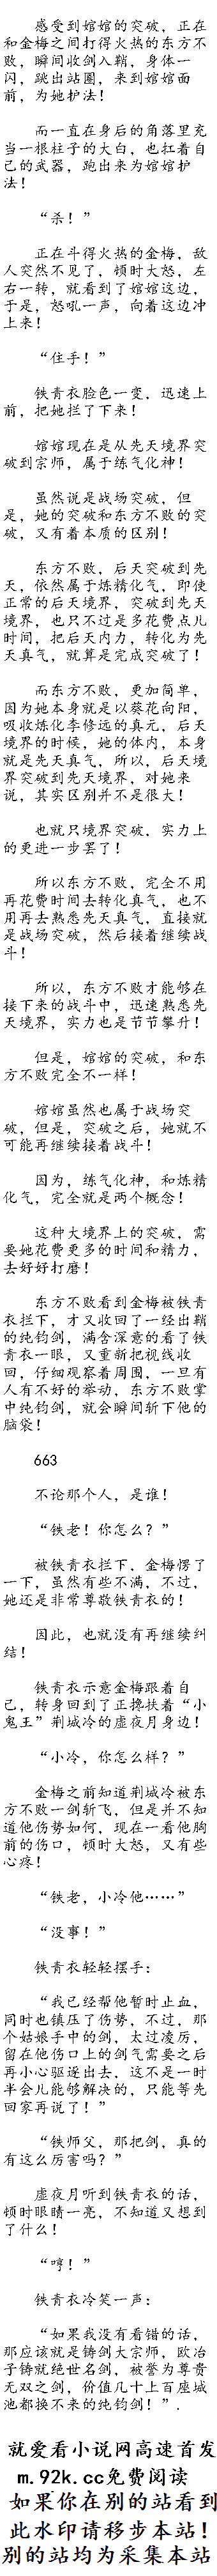 感受到婠婠的突破，正在
和金梅之间打得火热的东方不
败，瞬间收剑入鞘，身体一
闪，跳出站圈，来到婠婠面
前，为她护法！
而一直在身后的角落里充
当一根柱子的大白，也扛着自
己的武器，跑出来为婠婠护
法！
“杀！”
正在斗得火热的金梅，敌
人突然不见了，顿时大怒，左
右一转，就看到了婠婠这边，
于是，怒吼一声，向着这边冲
上来！
“住手！”
铁青衣脸色一变，迅速上
前，把她拦了下来！
婠婠现在是从先天境界突
破到宗师，属于练气化神！
虽然说是战场突破，但
是，她的突破和东方不败的突
破，又有着本质的区别！
东方不败，后天突破到先
天，依然属于炼精化气，即使
正常的后天境界，突破到先天
境界，也只不过是多花费点儿
时间，把后天内力，转化为先
天真气，就算是完成突破了！
而东方不败，更加简单，
因为她本身就是以葵花向阳，
吸收炼化李修远的真元，后天
境界的时候，她的体内，本身
就是先天真气，所以，后天境
界突破到先天境界，对她来
说，其实区别并不是很大！
也就只境界突破，实力上
的更进一步罢了！
所以东方不败，完全不用
再花费时间去转化真气，也不
用再去熟悉先天真气，直接就
是战场突破，然后接着继续战
斗！
所以，东方不败才能够在
接下来的战斗中，迅速熟悉先
天境界，实力也是节节攀升！
但是，婠婠的突破，和东
方不败完全不一样！
婠婠虽然也属于战场突
破，但是，突破之后，她就不
可能再继续接着战斗！
因为，练气化神，和炼精
化气，完全就是两个概念！
这种大境界上的突破，需
要她花费更多的时间和精力，
去好好打磨！
东方不败看到金梅被铁青
衣拦下，才又收回了一经出鞘
的纯钧剑，满含深意的看了铁
青衣一眼，又重新把视线收
回，仔细观察着周围，一旦有
人有不好的举动，东方不败掌
中纯钧剑，就会瞬间斩下他的
脑袋！
663
不论那个人，是谁！
“铁老！你怎么？”
被铁青衣拦下，金梅愣了
一下，虽然有些不满，不过，
她还是非常尊敬铁青衣的！
因此，也就没有再继续纠
结！
铁青衣示意金梅跟着自
己，转身回到了正搀扶着“小
鬼王”荆城冷的虚夜月身边！
“小冷，你怎么样？”
金梅之前知道荆城冷被东
方不败一剑斩飞，但是并不知
道他伤势如何，现在一看他胸
前的伤口，顿时大怒，又有些
心疼！
“铁老，小冷他……”
“没事！”
铁青衣轻轻摆手：
“我已经帮他暂时止血，
同时也镇压了伤势，不过，那
个姑娘手中的剑，太过凌厉，
留在他伤口上的剑气需要之后
再小心驱逐出去，这不是一时
半会儿能够解决的，只能等先
回家再说了！”
“铁师父，那把剑，真的
有这么厉害吗？”
虚夜月听到铁青衣的话，
顿时眼睛一亮，不知道又想到
了什么！
“哼！”
铁青衣冷笑一声：
“如果我没有看错的话，
那应该就是铸剑大宗师，欧冶
子铸就绝世名剑，被誉为尊贵
无双之剑，价值几十上百座城
池都换不来的纯钧剑！”.
就爱看小说网高速首发
m.92k.cc免费阅读
如果你在别的站看到
此水印请移步本站！
别的站均为采集本站